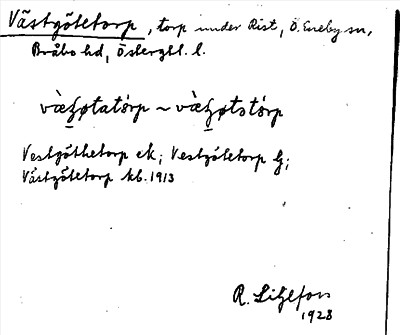 Västgötetorp, torp under Rist, Ö. Eneby sn,
Bråbo hd, Östergtl. l.
Vestgöthetorp ek; Vestgötetorp
Västgötetorp kb. 1913
R. Liljefors
1928